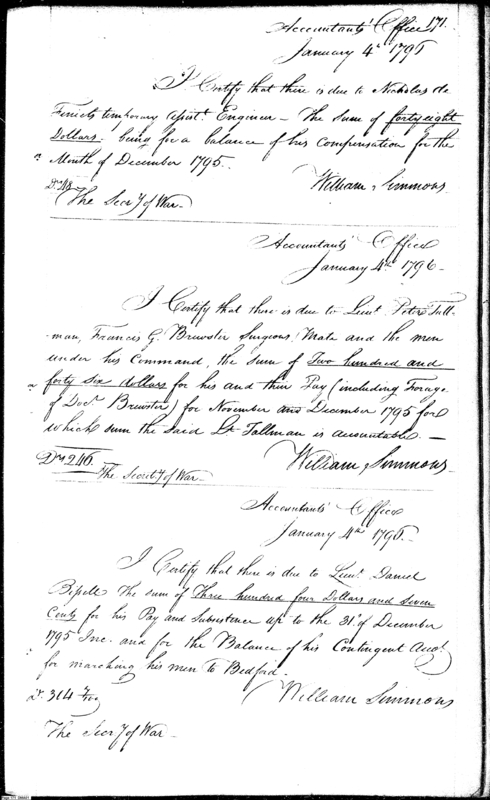 Accountants' Office 171.
January 4th 1796
I Certify that there is due to Nicholas de
Finiels temporary Assist. Engineer - The Sum of forty eight
Dollars. being for a balance of his Compensation for the
Month of December 1795.
William Simmons.
Drs 48
The Secr'y of War -
Accountants' Office
January 4th 1796 -
I Certify that there is due to Lieut. Peter Tall-
-man, Francis G. Brewster Surgeons Mate and the men
under his Command, the sum of Two hundred and
forty six dollars for his and their Pay (including Forage
of Doct. Brewster) for November and December 1795 for
which sum the said Lt. Tallman is accountable -
Drs 246. William Simmons.
The Secret'y of War -
Accountants' Office
January 4th 1796.
I Certify that there is due to Lieut. Daniel
Bissell The sum of Three hundred four Dollars and seven
Cents for his Pay and Subsistence up to the 31st of December
1795 Inc. and for the Balance of his Contingent Acct.
for marching his men to Bedford.
Dr. 304 7/100 William Simmons
The Secr'y of War -